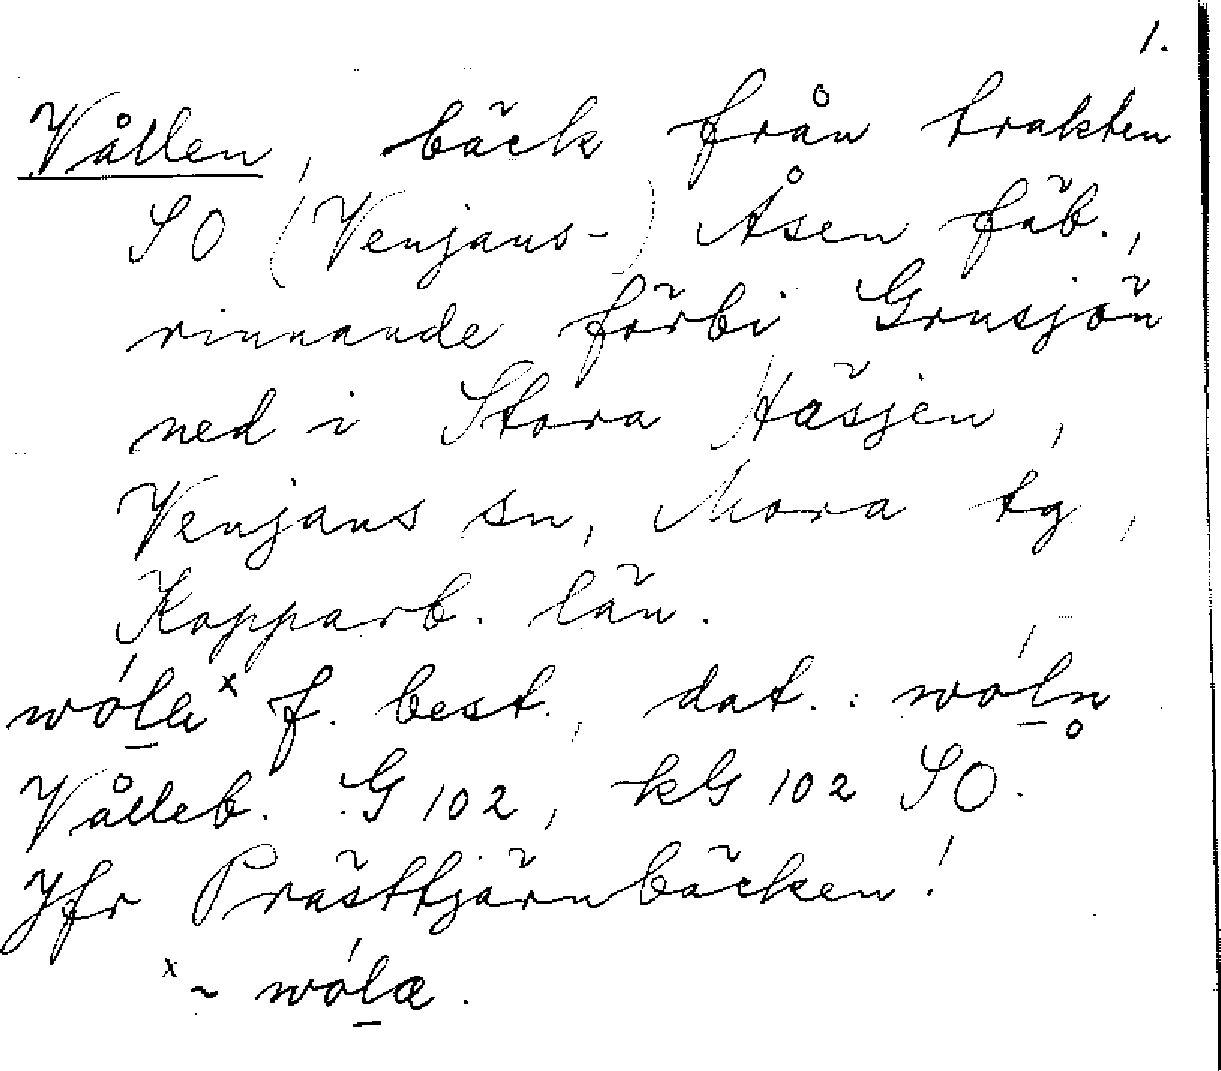 1.
Vållen, bäck från trakten
SO (Venjans-) Åsen fäb.,
rinnande förbi Grusjön
ned i Stora Häsjen,
Venjans sn, Mora tg,
Kopparb. län.
f. best., dat.:
Vålleb. G 102, kG 102 SO.
Jfr Prästtjärnbäcken!
x ~ wóḻa.